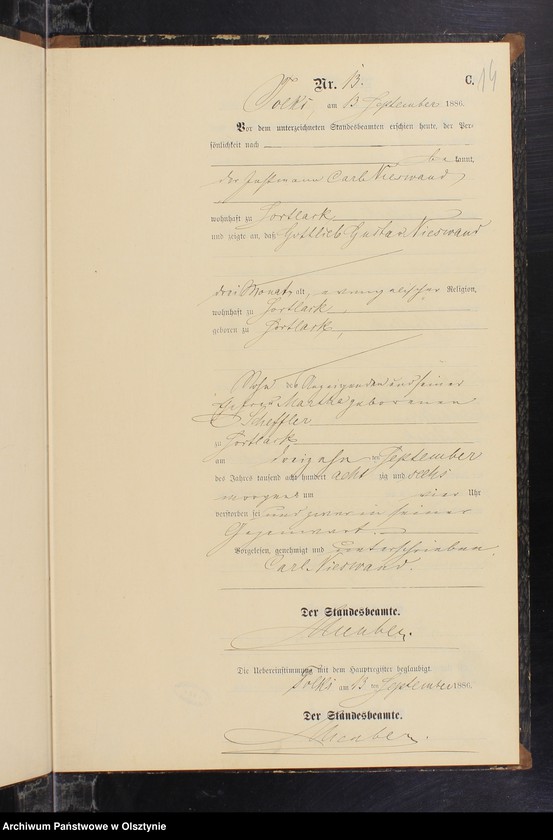 Nr. 13.
C. 14
Tolks, am 13 September 1886.
Vor dem unterzeichneten Standesbeamten erschien heute, der Per-
sönlichkeit nach
be kannt,
der Carl Nieswand
wohnhaft zu Hortlack
und zeigte an, daß Gottlieb Gustav Nieswand
drei Monat alt, evangelischer Religion,
wohnhaft zu Hortlack,
geboren zu Hortlack,
Sohn des Anzeigenden und seiner
Ehefrau Martha geborenen
Scheffler
zu Hortlack
am dreizehn ten September
des Jahres tausend acht hundert acht zig und sechs
morgens um vier Uhr
verstorben sei und zwar in seiner
Gegenwart.
Vorgelesen, genehmigt und unterschrieben.
Carl Nieswand.
Der Standesbeamte.
Die Uebereinstimmung mit dem Hauptregister beglaubigt.
Tolks am 13 ten September 1886.
Der Standesbeamte.
Archiwum Państwowe w Olsztynie